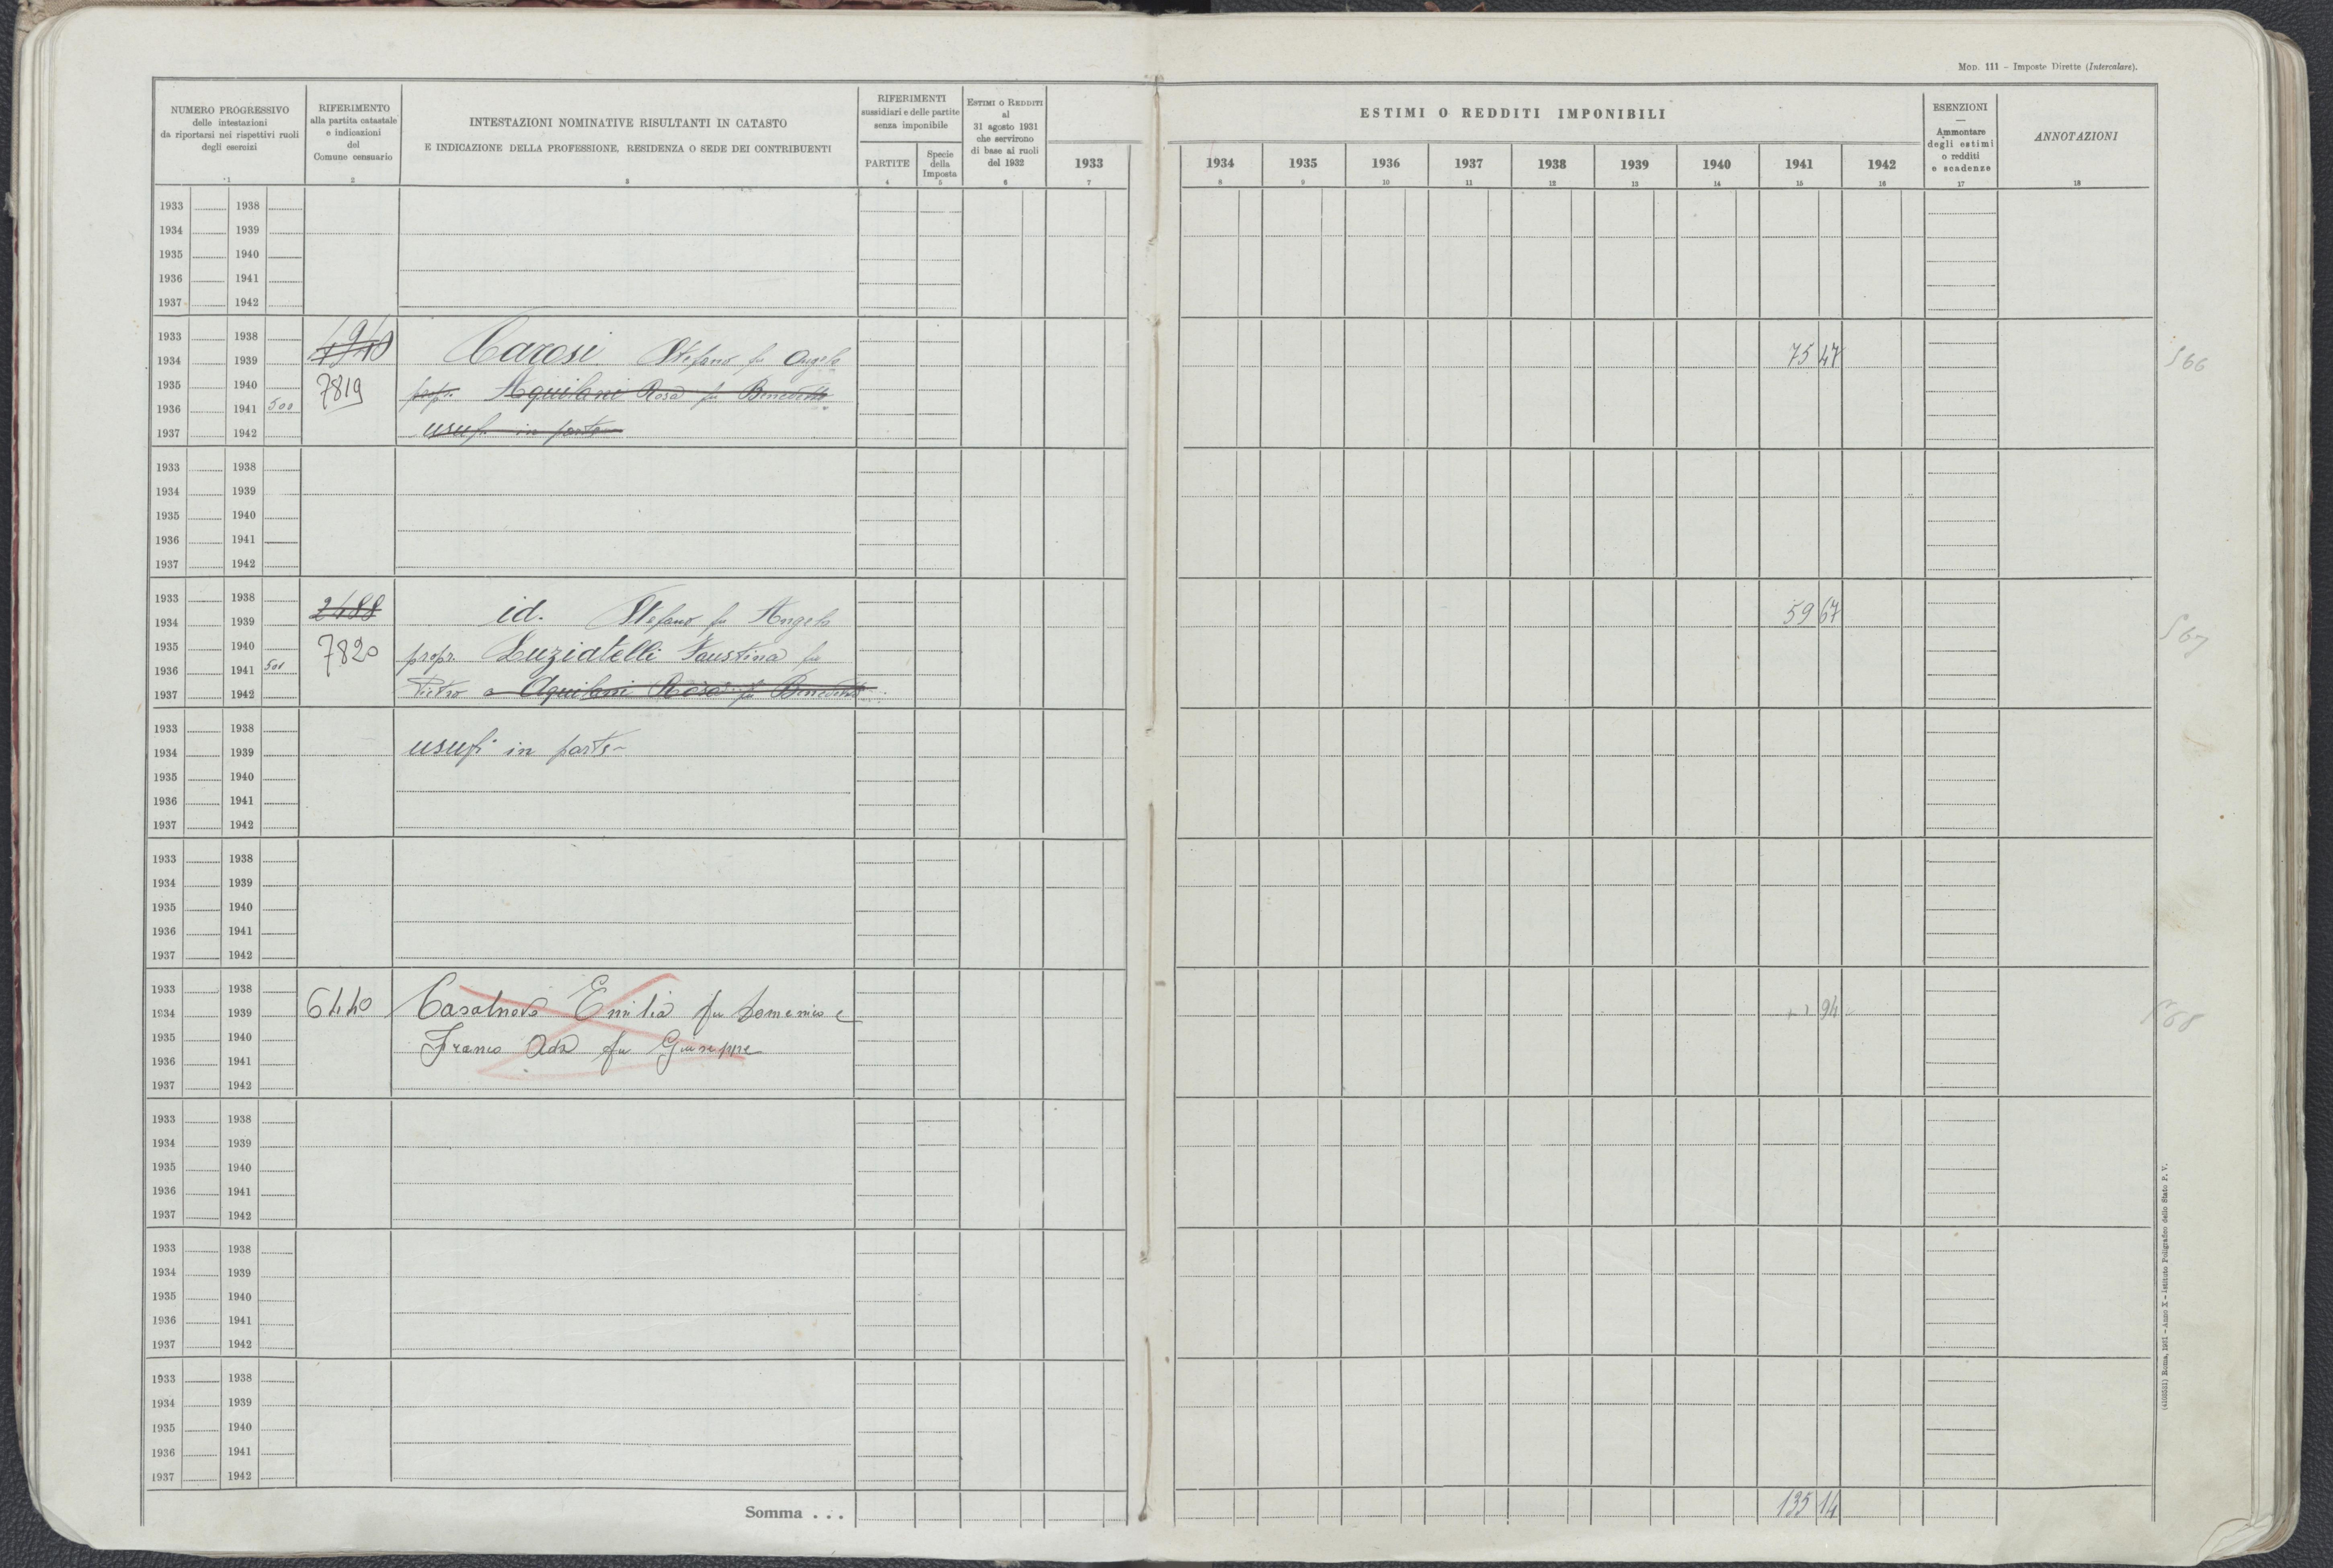 Mod. 111 – Imposte Dirette (Intercalare).
NUMERO PROGRESSIVO
delle intestazioni
da riportarsi nei rispettivi ruoli
degli esercizi
1
RIFERIMENTO
alla partita catastale
e indicazioni
del
Comune censuario
2
INTESTAZIONI NOMINATIVE RISULTANTI IN CATASTO
E INDICAZIONE DELLA PROFESSIONE, RESIDENZA O SEDE DEI CONTRIBUENTI
3
RIFERIMENTI
sussidiari e delle partite
senza imponibile
PARTITE
4
Specie
della
Imposta
5
Estimi o Redditi
al
31 agosto 1931
che servirono
di base ai ruoli
del 1932
6
1933
7
ESTIMI O REDDITI IMPONIBILI
1934 1935 1936 1937 1938 1939 1940 1941 1942
8 9 10 11 12 13 14 15 16
ESENZIONI
—
Ammontare
degli estimi
o redditi
e scadenze
17
ANNOTAZIONI
18
1933 1938
1934 1939
1935 1940
1936 1941
1937 1942
1933 1938 4940
1934 1939 Carosi Stefano fu Angelo 75 47 566
1935 1940 7819 propr. Aquilani Rosa fu Benedetto
1936 1941 500
1937 1942 usuf. in parte
1933 1938
1934 1939
1935 1940
1936 1941
1937 1942
1933 1938 2488
1934 1939 id. Stefano fu Angelo 59 67 567
1935 1940 7820 propr. Luziatelli Faustina fu
1936 1941 501
1937 1942 Pietro e Aquilani Rosa fu Benedetto
1933 1938
1934 1939 usuf. in parte
1935 1940
1936 1941
1937 1942
1933 1938
1934 1939
1935 1940
1936 1941
1937 1942
1933 1938
1934 1939 6440 Casalnovo Emilia fu Domenico e 94 568
1935 1940 Franco Ada fu Giuseppe
1936 1941
1937 1942
1933 1938
1934 1939
1935 1940
1936 1941
1937 1942
1933 1938
1934 1939
1935 1940
1936 1941
1937 1942
1933 1938
1934 1939
1935 1940
1936 1941
1937 1942
Somma . . . 135 14
(4103531) Roma, 1931 – Anno X – Istituto Poligrafico dello Stato P. V.